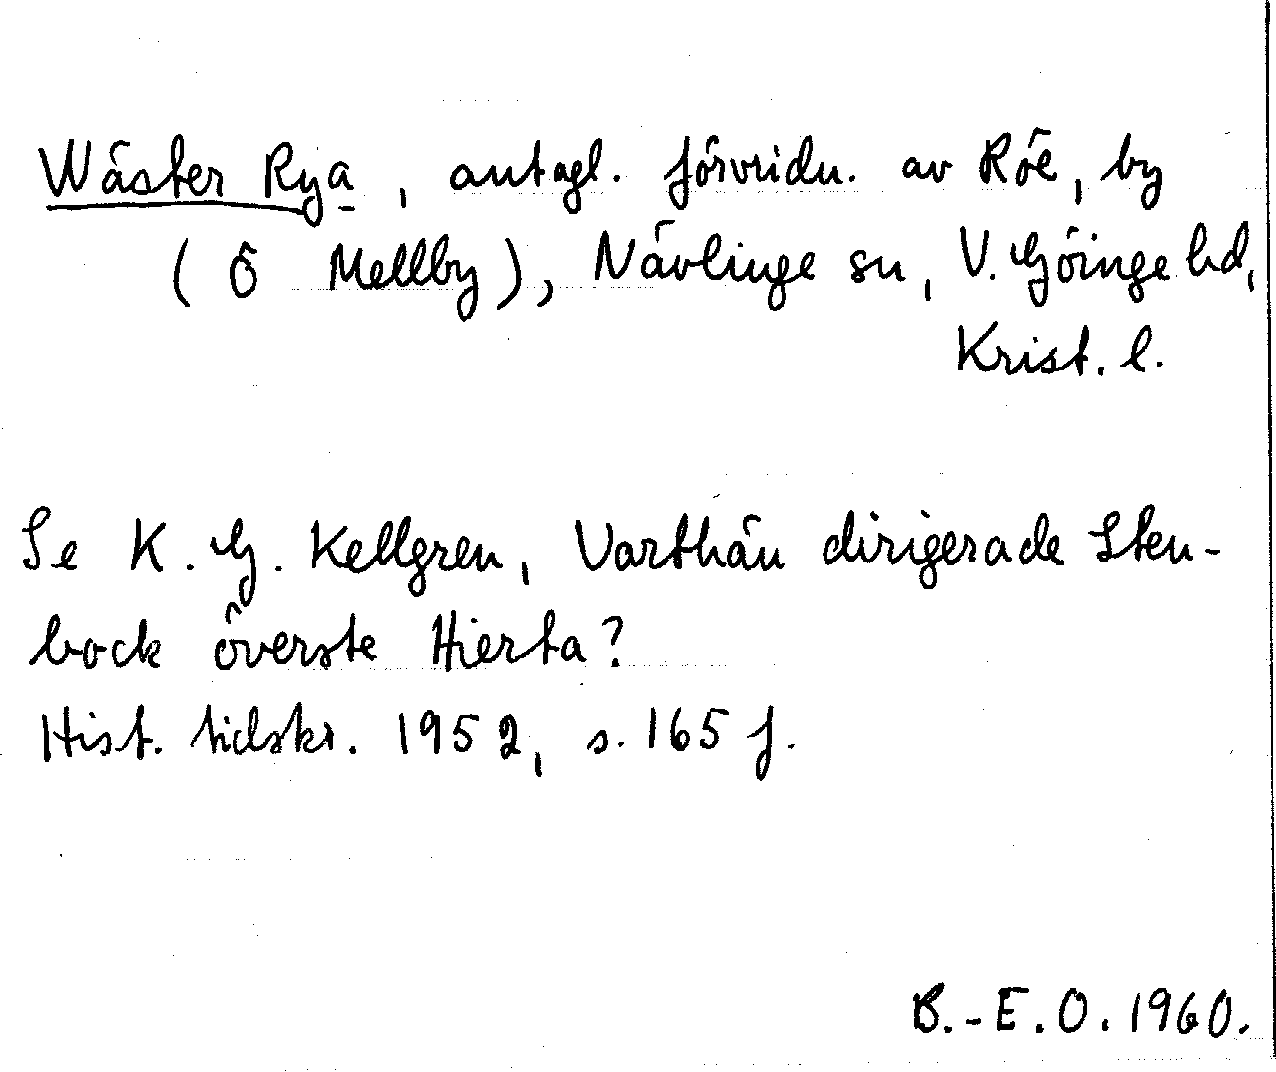 Wäster Rya, antagl. förvridn. av Röe, by
(Ö Mellby), Nävlinge sn, V. Göinge hd,
Krist. l.
Se K. G. Kellgren, Varthän dirigerade Sten-
bock överste Hierta?
Hist. tidskr. 1952, s. 165 f.
B.-E.O. 1960.